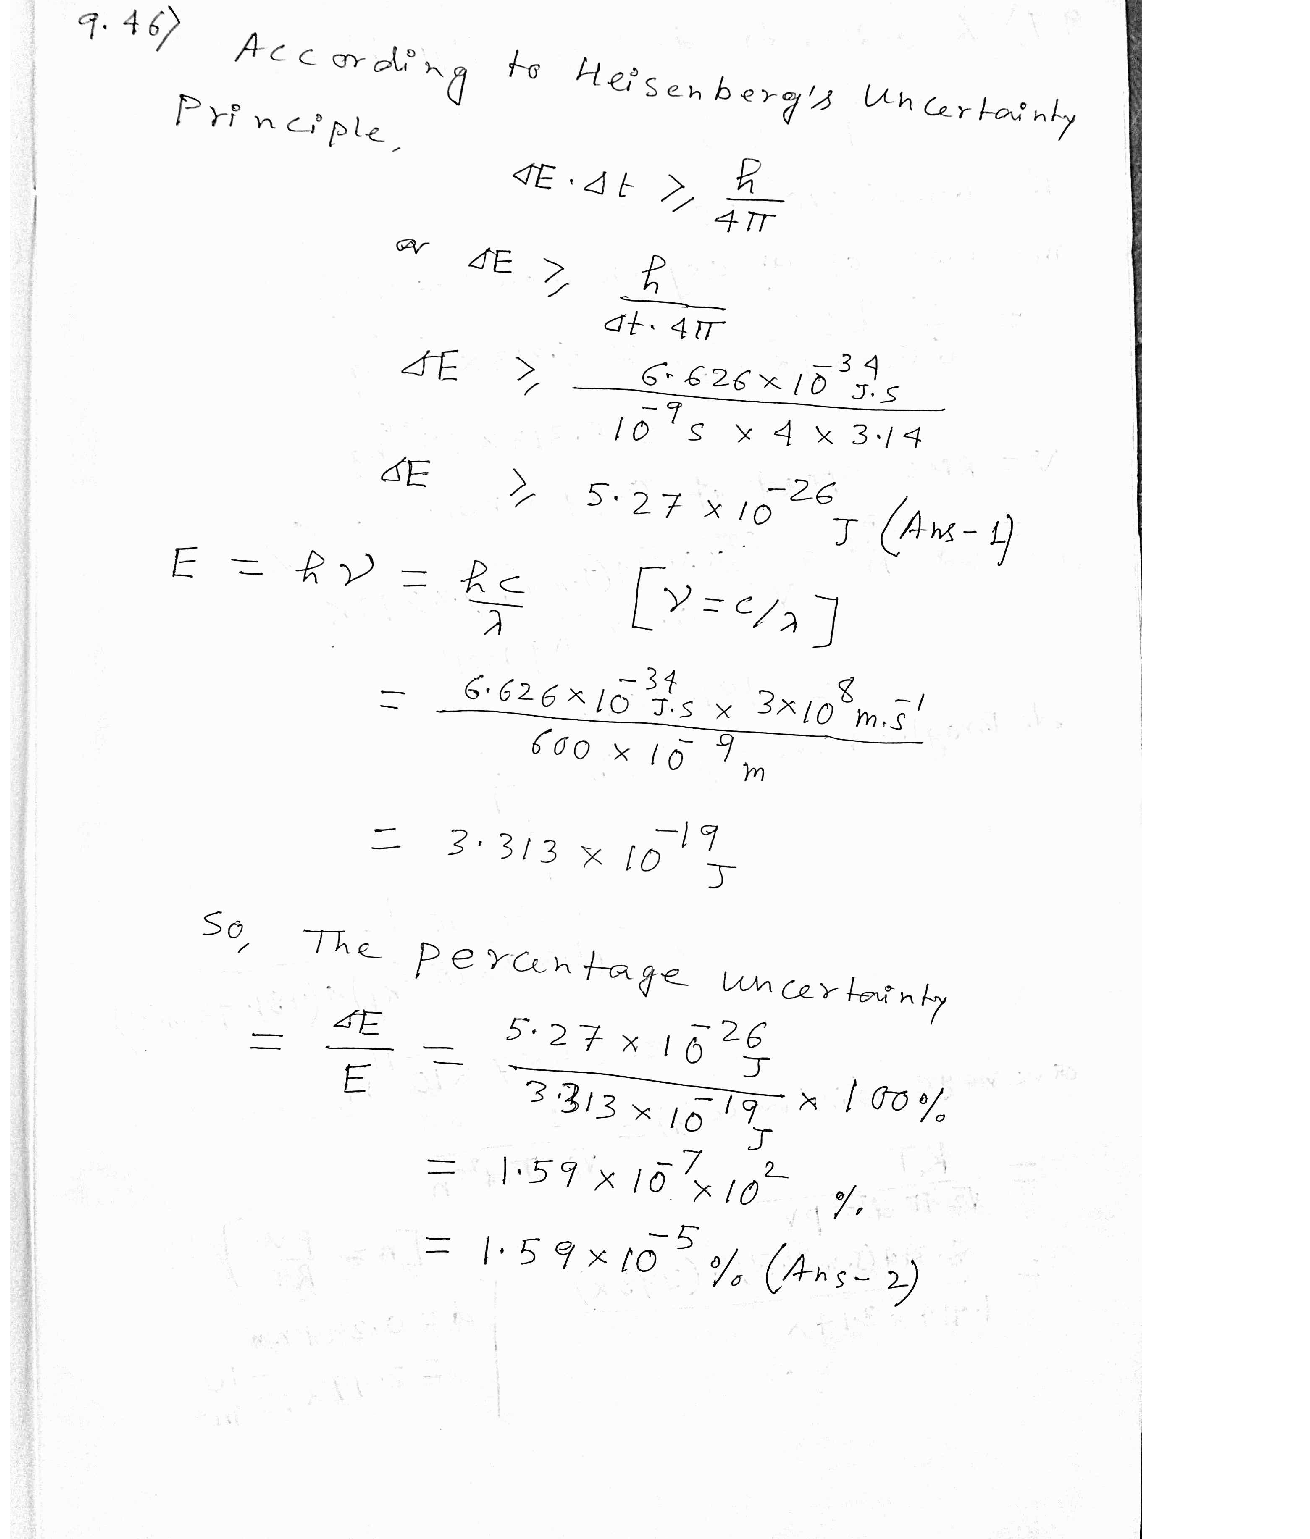 9.46) According to Heisenberg's Uncertainty
Principle,
ΔE · Δt ⩾ h / 4π
or ΔE ⩾ h / Δt · 4π
ΔE ⩾ 6.626 × 10⁻³⁴ J.s / 10⁻⁹ s × 4 × 3.14
ΔE ⩾ 5.27 × 10⁻²⁶ J (Ans-1)
E = hν = hc / λ [ν = c/λ]
= 6.626 × 10⁻³⁴ J.s × 3 × 10⁸ m.s⁻¹ / 600 × 10⁻⁹ m
= 3.313 × 10⁻¹⁹ J
So, The percentage uncertainty
= ΔE / E = 5.27 × 10⁻²⁶ J / 3.313 × 10⁻¹⁹ J × 100%
= 1.59 × 10⁻⁷ × 10² %
= 1.59 × 10⁻⁵ % (Ans-2)